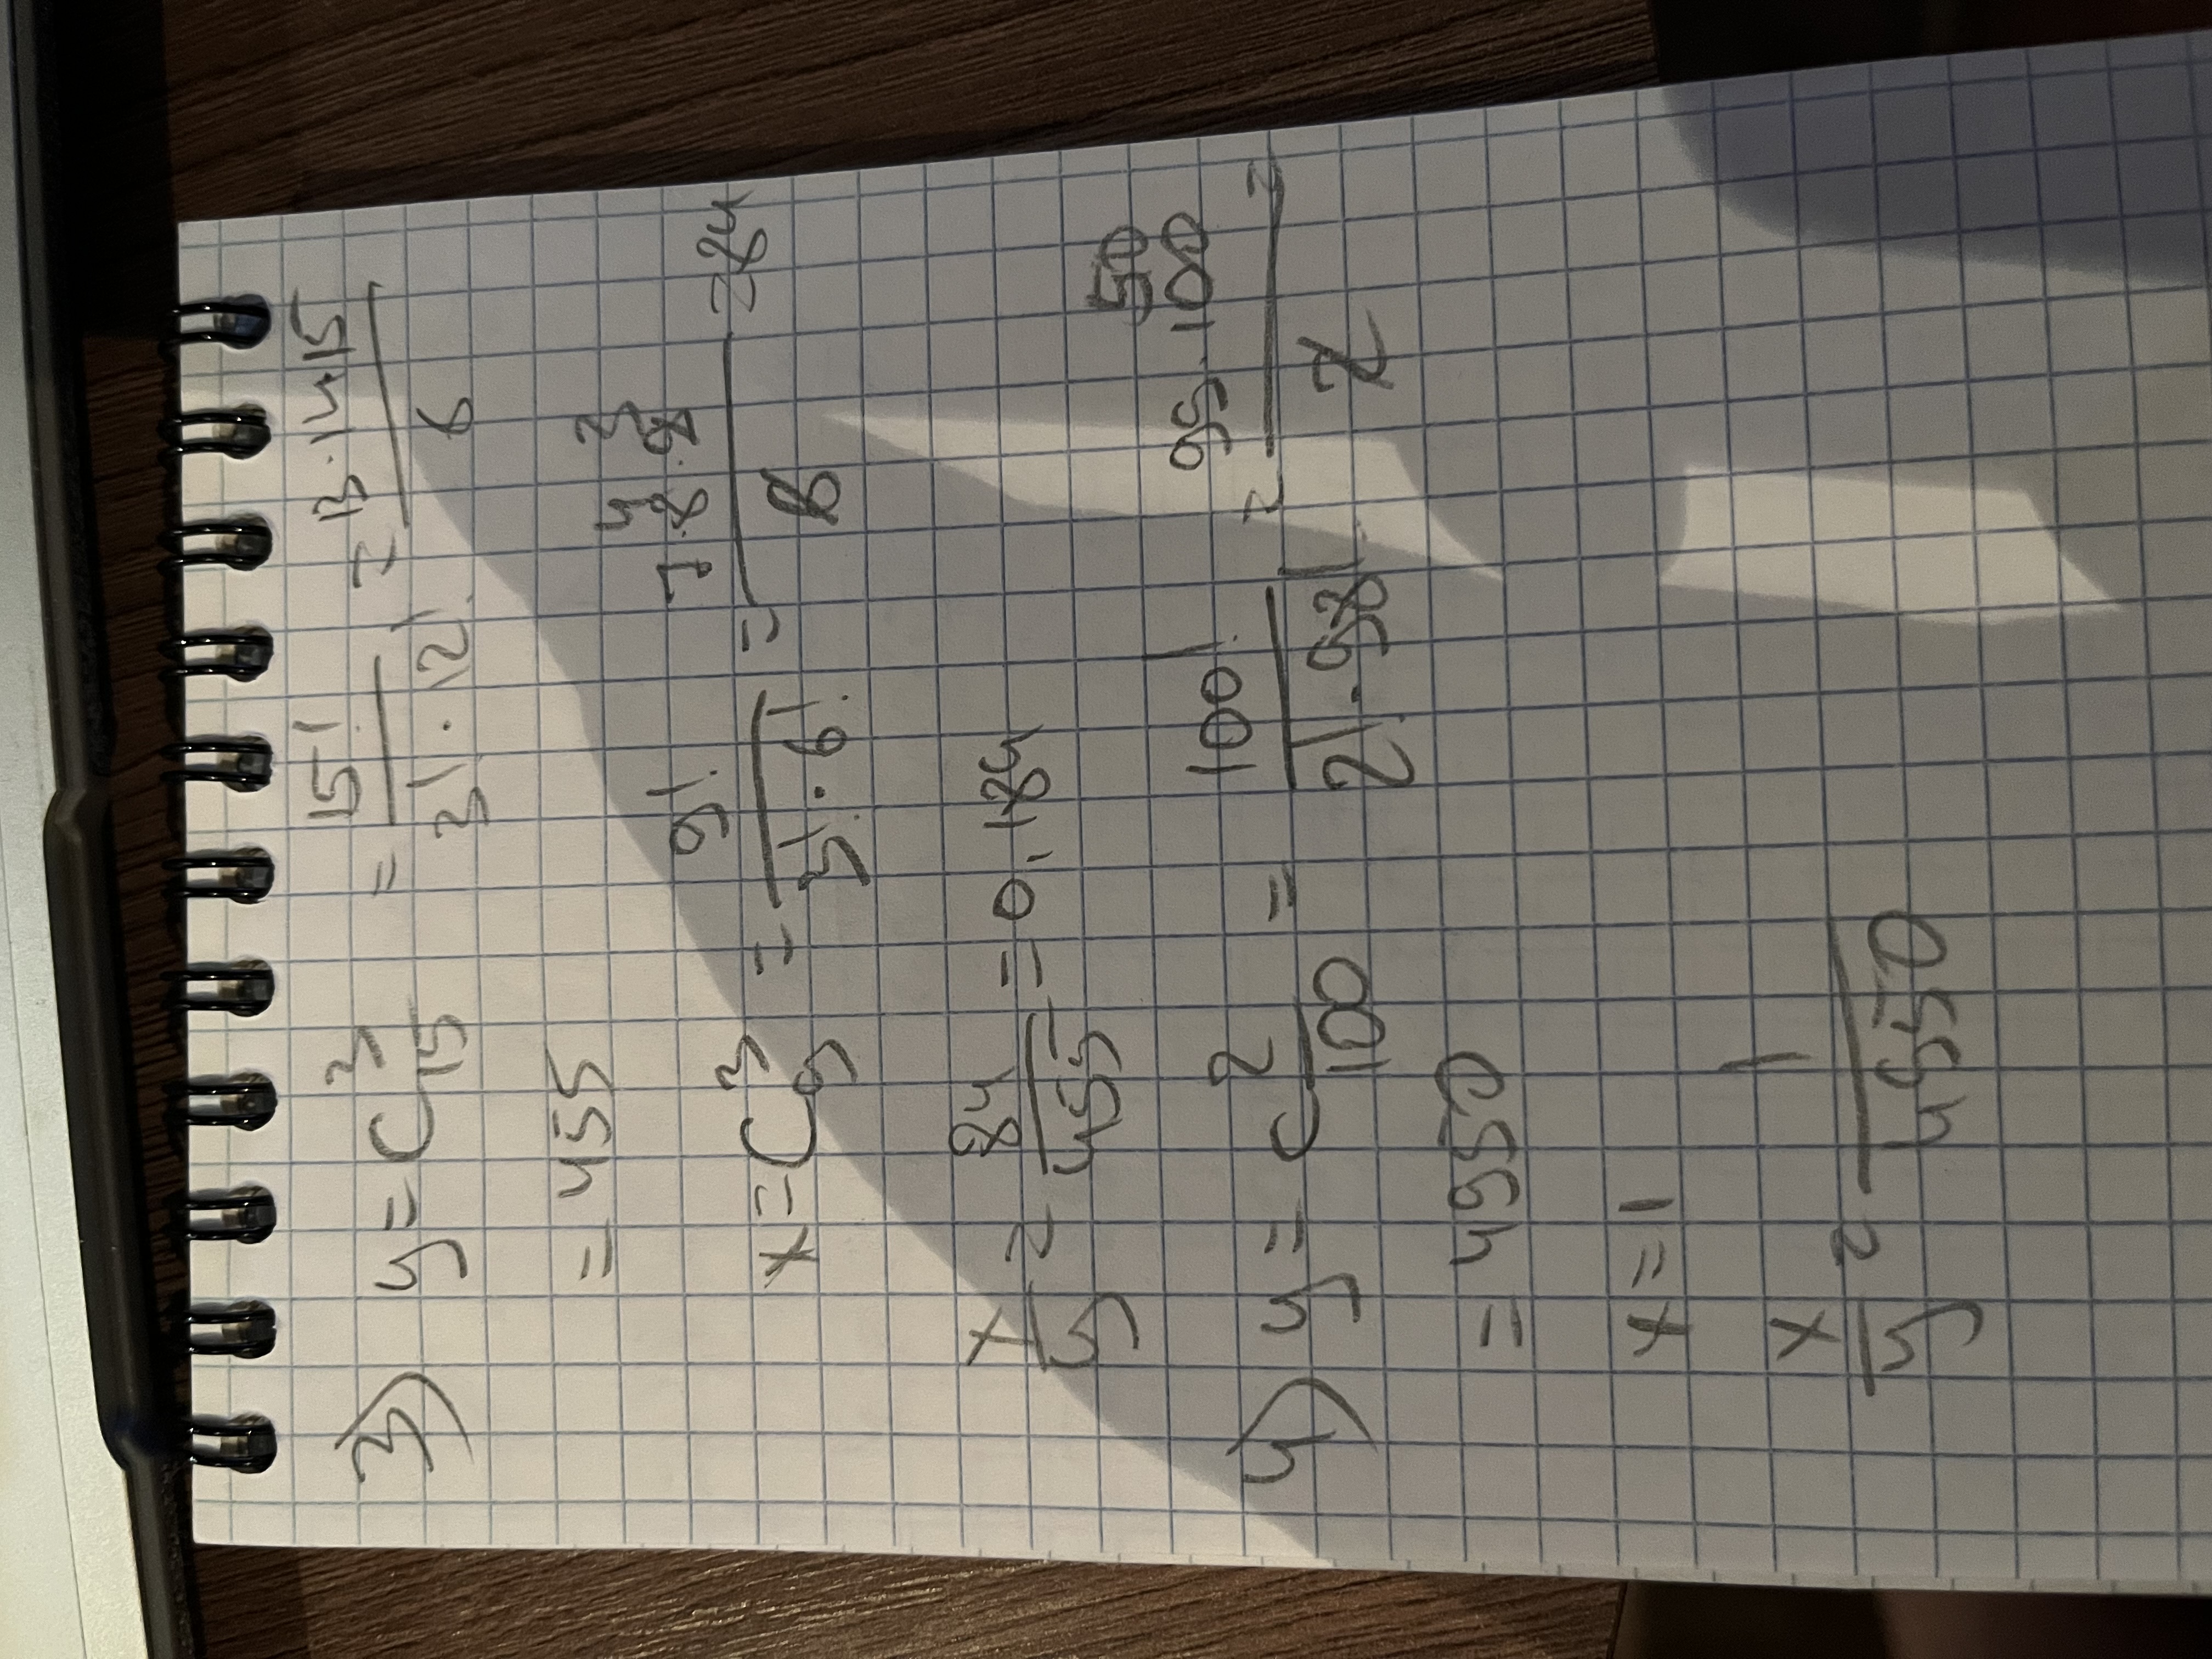 3) y = C³₁₅ = 15! / 3! · 12! = 13 · 14 · 15 / 6
= 455
x = C³₉ = 9! / 3! · 6! = 7 · 8 · 9 / 6 = 84
4 3
x / y = 84 / 455 = 0,184
50
4) y = C²₁₀₀ = 100! / 2! · 98! = 99 · 100 / 2 =
= 4950
x = 1
x / y = 1 / 4950